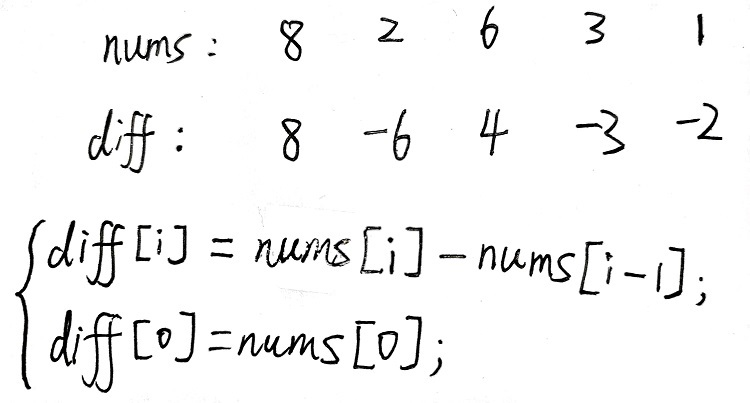 nums: 8 2 6 3 1
diff: 8 -6 4 -3 -2
diff[i] = nums[i] - nums[i-1];
diff[0] = nums[0];